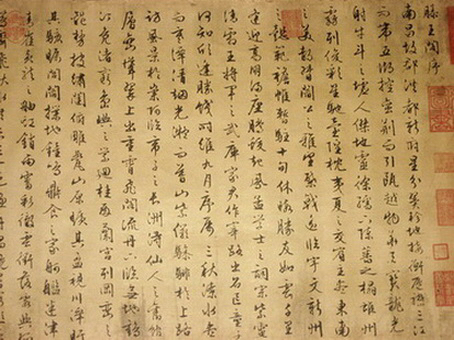 滕王閣序
南昌故郡洪都新府星分翼軫地接衡廬襟三江
而帶五湖控蠻荊而引甌越物華天寶龍光
射牛斗之墟人傑地靈徐孺下陳蕃之榻雄州
霧列俊彩星馳臺隍枕夷夏之交賓主盡東南
之美都督閻公之雅望棨戟遙臨宇文新州
之懿範襜帷暫駐十旬休暇勝友如雲千里
逢迎高朋滿座騰蛟起鳳孟學士之詞宗紫電
清霜王將軍之武庫家君作宰路出名區童子
何知躬逢勝餞時維九月序屬三秋潦水盡
而寒潭清煙光凝而暮山紫儼驂騑於上路
訪風景於崇阿臨帝子之長洲得仙人之舊館
層巒聳翠上出重霄飛閣流丹下臨無地鶴
汀鳧渚窮島嶼之縈迴桂殿蘭宮列岡巒之
體勢披繡闥俯雕甍山原曠其盈視川澤盱
其駭矚閭閻撲地鐘鳴鼎食之家舸艦迷津
青雀黃龍之舳虹銷雨霽彩徹雲衢落霞與孤